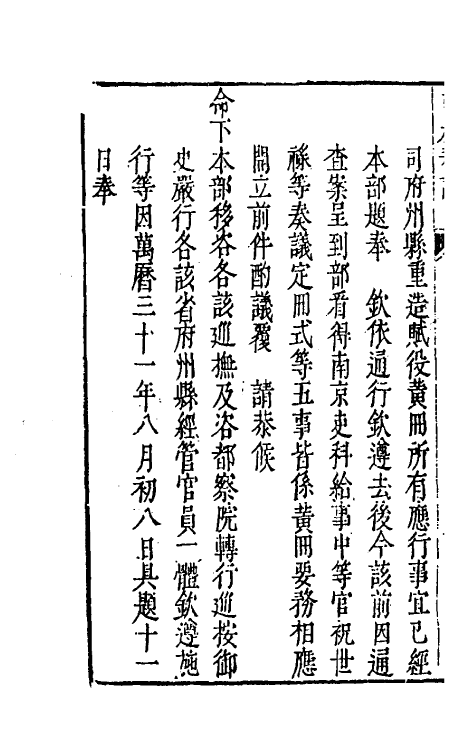 司府州縣重造賦役黄冊所有應行事宜已經
本部題奉 欽依通行欽遵去後今該前因通
查案呈到部看得南京吏科給事中等官祝世
祿等奏議定冊式等五事皆係黄冊要務相應
開立前件酌議覆 請恭候
命下本部移咨各該廵撫及咨都察院轉行廵按御
史嚴行各該省府州縣經管官員一體欽遵施
行等因萬曆三十一年八月初八日具題十一
日奉